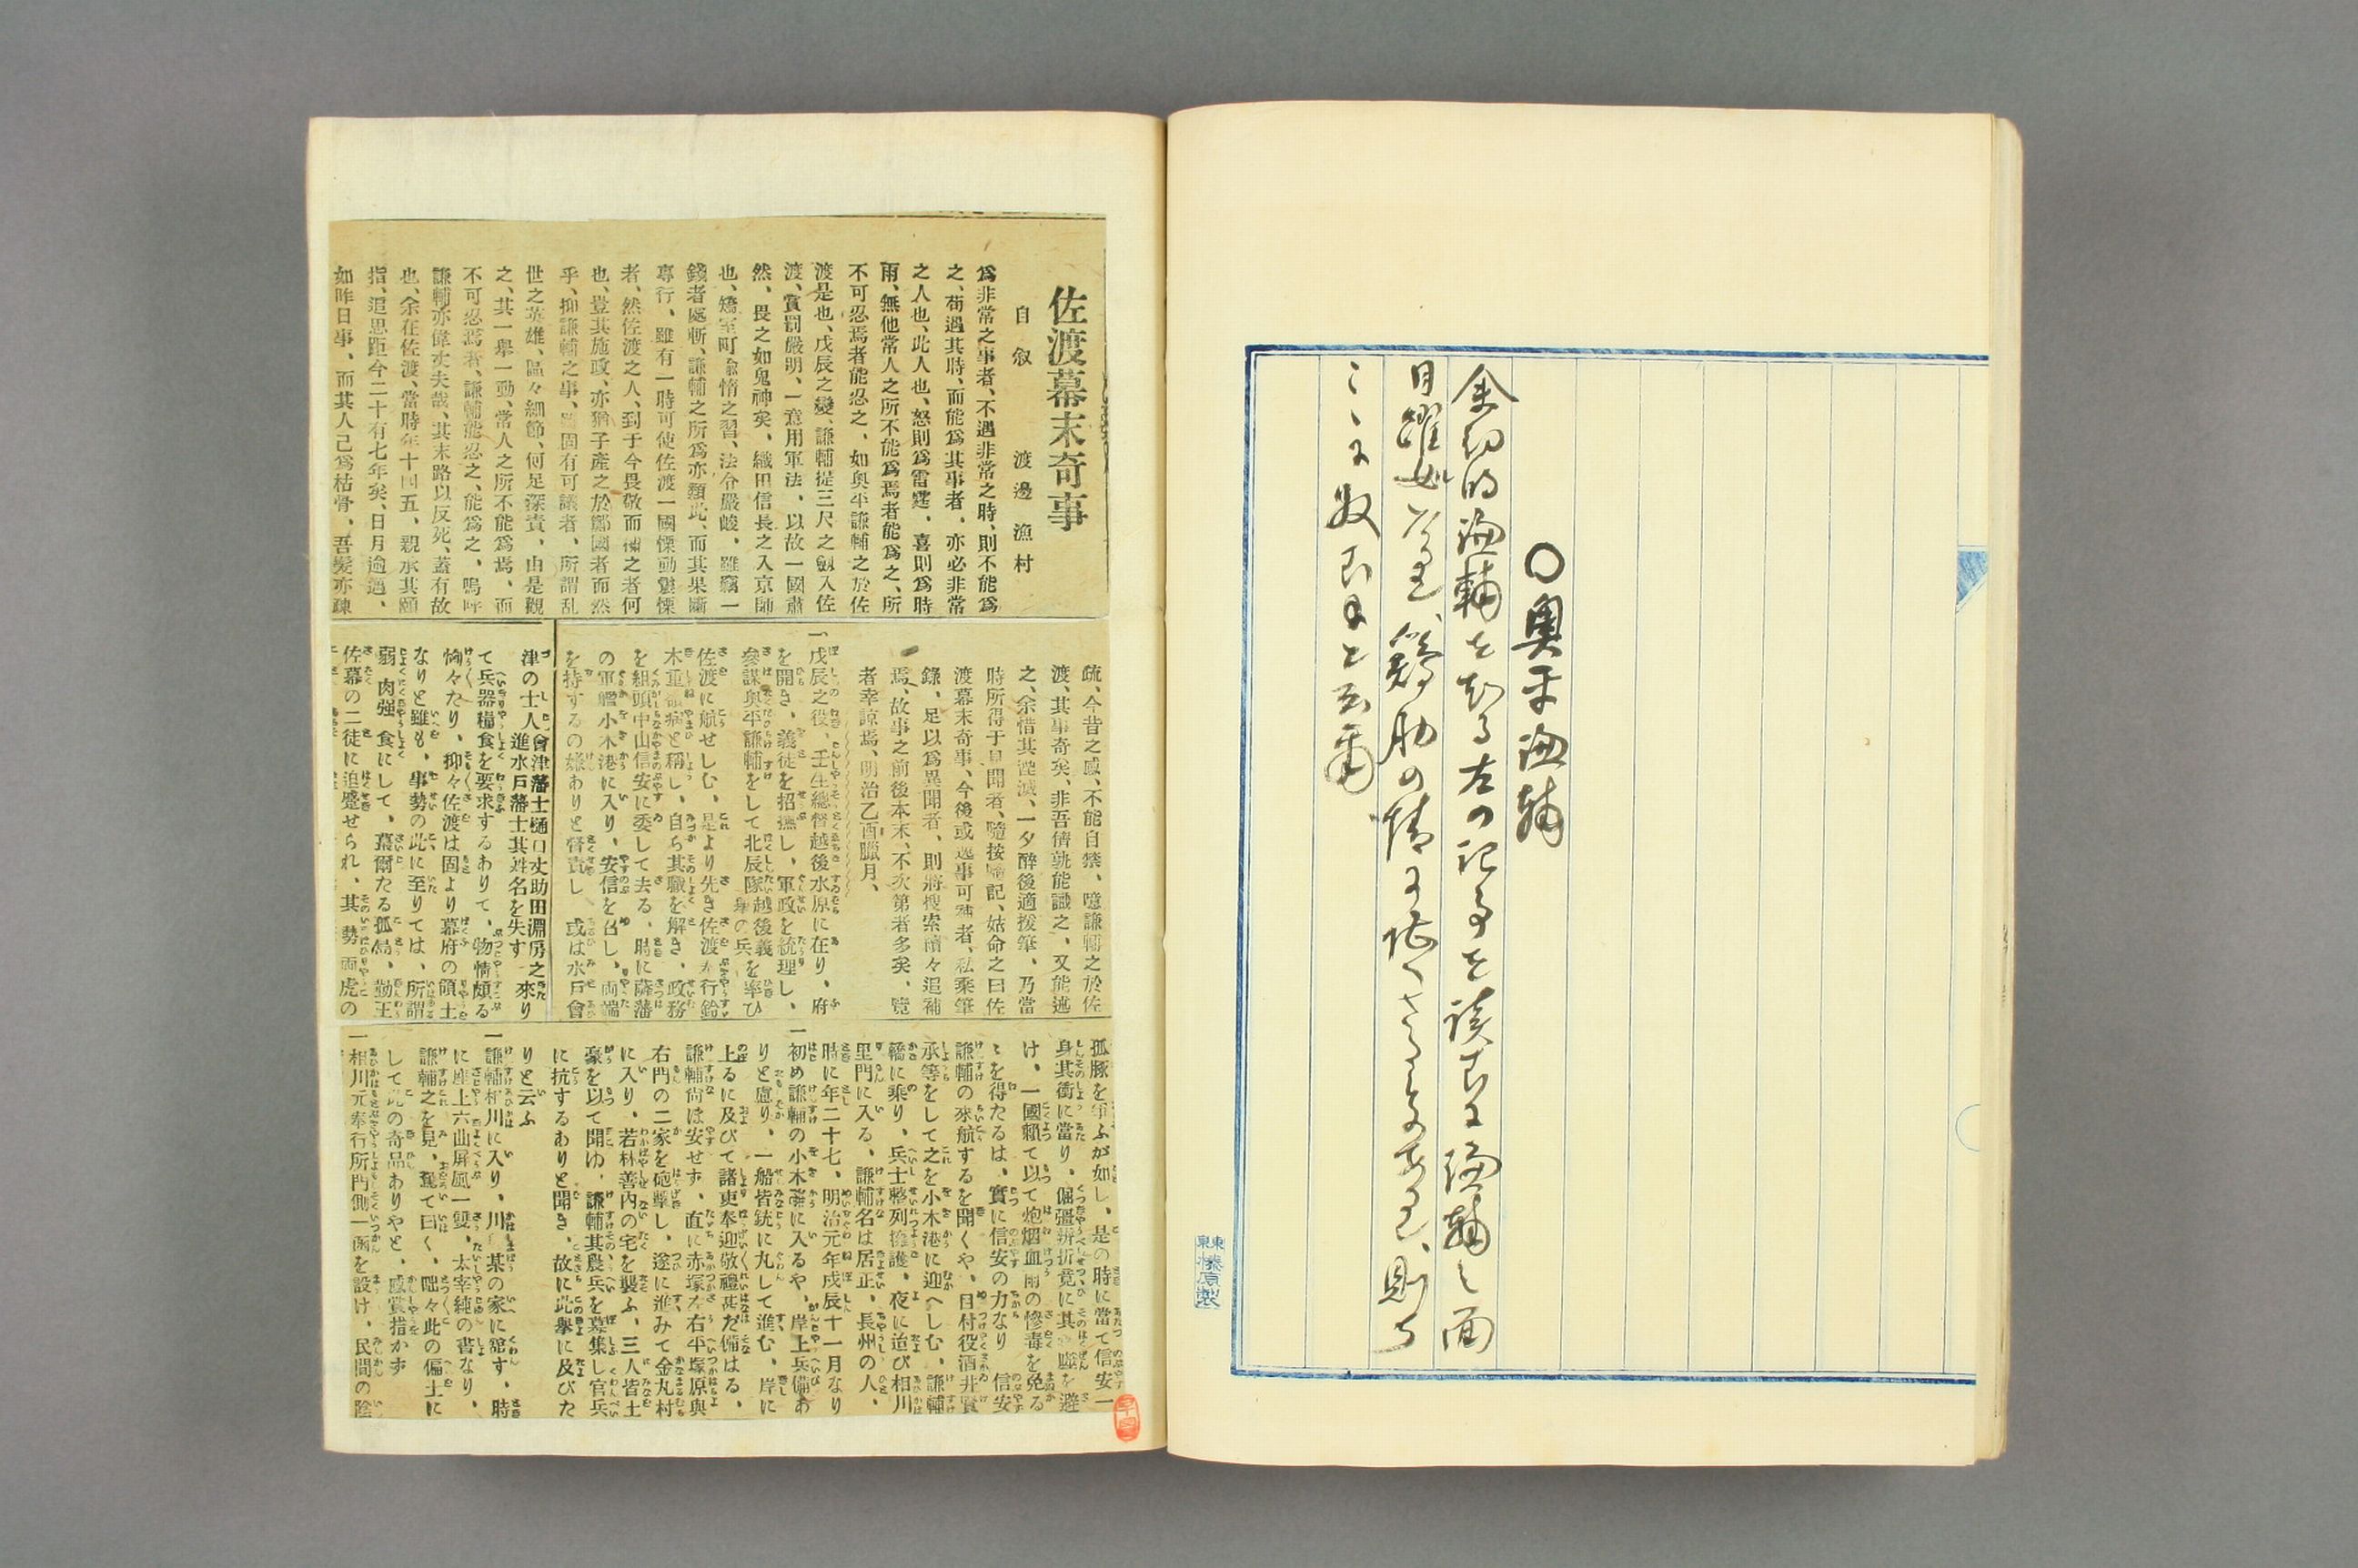 ○奥平謙輔
余幼時謙輔を知る左の記事を讀むに謙輔之面
目躍如
東京榛原製
佐渡幕末奇事
自叙　渡邊漁村
爲非常之事者、不遇非常之時、則不能爲
之、苟遇其時、而能爲其事者、亦必非常
之人也、此人也、怒則爲雷霆、喜則爲時
雨、無他常人之所不能爲焉者能爲之、所
不可忍焉者能忍之、如奥平謙輔之於佐
渡是也、戊辰之變、謙輔提三尺之劔入佐
渡、賞罰嚴明、一意用軍法、以故一國肅
然、畏之如鬼神矣、織田信長之入京師
也、矯室町偸惰之習、法令嚴峻、雖竊一
錢者處斬、謙輔之所爲亦類此、而其果斷
專行、雖有一時可使佐渡一國慄動鬟慄
者、然佐渡之人、到于今畏敬而稱之者何
也、豈其施政、亦猶子產之於鄭國者而然
乎、抑謙輔之事、固有可議者、所謂乱
世之英雄、區々細節、何足深責、由是觀
之、其一舉一動、常人之所不能爲焉、而
不可忍焉者、謙輔能忍之、能爲之、嗚呼
謙輔亦偉丈夫哉、其末路以反死、蓋有故
也、余在佐渡、當時年十四五、親承其頤
指、追思距今二十有七年矣、日月逾邁、
如昨日事、而其人已爲枯骨、吾髮亦疎
疏、今昔之感、不能自禁、噫謙輔之於佐
渡、其事奇矣、非吾儕孰能識之、又能述
之、余惜其湮滅、一夕醉後適援筆、乃當
時所得于見聞者、隨按隨記、姑命之曰佐
渡幕末奇事、今後或逸事可補者、私乘筆
錄、足以爲異聞者、則將搜索續々追補
焉、故事之前後本末、不次第者多矣、覽
者幸諒焉、明治乙酉臘月、
一戊辰之役、壬生總督越後水原に在り、府
を開き、義徒を招撫し、軍政を統理し、
參謀奥平謙輔をして北辰隊越後義擧の兵を率ひ
佐渡に航せしむ、是より先き佐渡奉行鈴
木重嶺病と稱し、自ら其職を解き、政務
を組頭中山信安に委して去る、時に薩藩
の軍艦小木港に入り、安信を召し、両端
を持するの嫌ありと督責し　或は水戸會
津の士人會津藩士樋口丈助田淵房之進水戸藩士其姓名を失す來り
て兵器糧食を要求するありて、物情頗る
恟々たり、抑々佐渡は固より幕府の領土
なりと雖も、事勢の此に至りては、所謂
弱肉强食にして、蕞爾たる孤島、勤王
佐幕の二徒に迫蹙せられ、其勢両虎の
孤豚を爭ふが如し、是の時に當て信安一
身其衝に當り、倔彊辨折竟に其鋒を避
け、一國賴て以て炮烟血雨の慘毒を免る
ゝを得たるは、實に信安の力なり　信安
謙輔の來航するを聞くや、目付役酒井賢
承等をして之を小木港に迎へしむ、謙輔
轎に乘り、兵士整列擁護、夜に迨び相川
里門に入る、謙輔名は居正、長州の人、
時に年二十七、明治元年戊辰十一月なり
一初め謙輔の小木港に入るや、岸上兵備あ
りと慮り、一船皆銃に丸して進む、岸に
上るに及びて諸吏奉迎敬禮甚だ備はる、
謙輔尙は安せす、直に赤塚左右平塚原與
右門の二家を砲擊し、遂に進みて金丸村
に入り、若林善内の宅を襲ふ、三人皆土
豪を以て聞ゆ、謙輔其農兵を募集し官兵
に抗するありと聞き、故に此擧に及びた
りと云ふ
一謙輔相川に入り、川島某の家に舘す、時
に座上六曲屏風一雙、太宰純の書なり、
謙輔之を見、驚て曰く、咄々此の偏土に
して此の奇品ありやと、感賞措かず
一相川元奉行所門側一函を設け、民間の陰